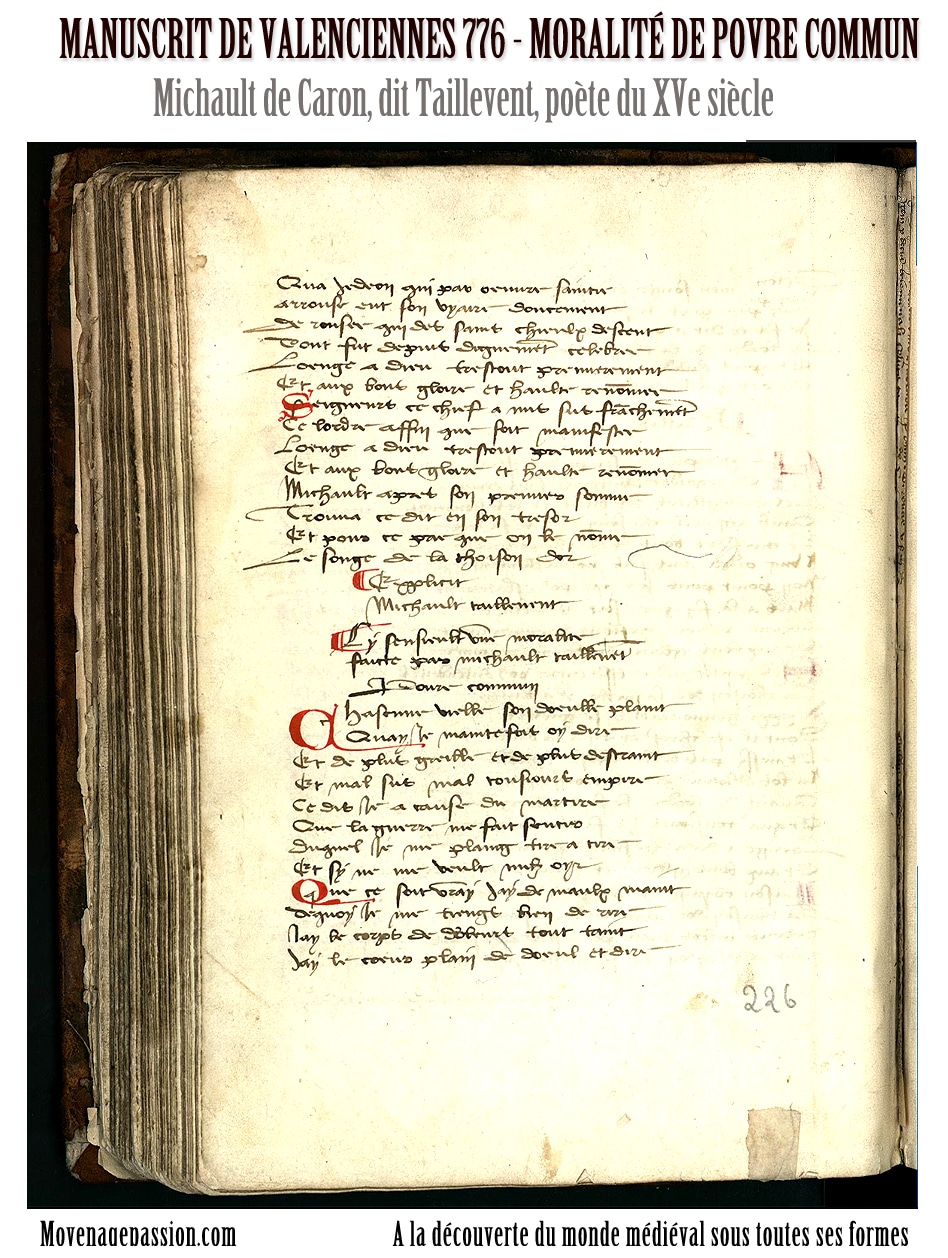 MANUSCRIT DE VALENCIENNES 776 - MORALITÉ DE POVRE COMMUN
Michault de Caron, dit Taillevent, poète du XVe siècle
Qua Jedeon qui par oeuvre saincte
arrouse eut son vyaire doucement
De rousee qui des sains chieulx descent
Dont fut depuis dignemēt celebree
Loenge a dieu trestout premierement
Et aux bons gloire et haulte renōmee
Seigneurs ce chief a mis sus frāchemēt
Ce lordre affin que soit manifestee
Loenge a dieu trestout premierement
Et aux bons gloire et haulte renōmee
Michault apres son premier somme
Trouva ce dit en son tresor
Et pour ce gree que on le nōme
Le songe de la thoison dor
Explicit
Michault taillevent
Cy sensieult vne moralite
faicte par michault taillevēt
Povre commun
Chascune vielle son doeulle plaint
Quay Je maintefois oy dire
Et de plus greille et de plus destraint
Et mal sus mal tousiours empire
Ce dis Je a cause du martire
Que la guerre me fait sentir
Duquel Je me plaing tire a tire
Et sy ne me veult nulz oyr
Que ce soit vray Jay de maulx maint
dequoy Je me tiengs bien de rire
Jay le corps de doleurs tout taint
Jay le coeur plain de doeul et dire
226
Moyenagepassion.com
A la découverte du monde médiéval sous toutes ses formes